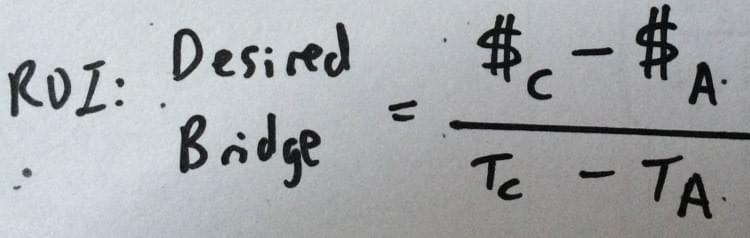 ROI: Desired Bridge = $C - $A
TC - TA